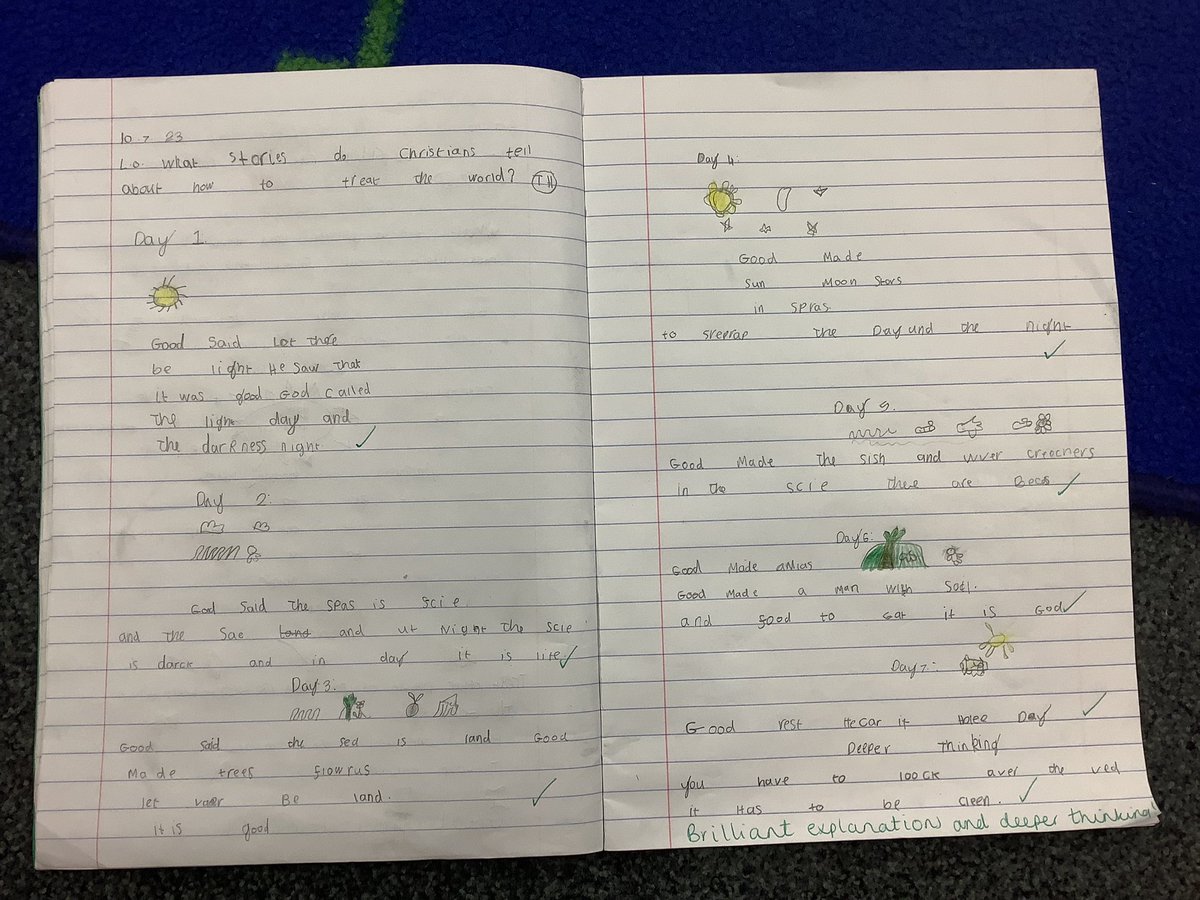 10.7.23
L.O. What stories do Christians tell
about how to treat the world? TH
Day 1.
Good Said Let there
be light He saw that
it was good God called
the light day and
the darkness night
Day 2:
God said the spas is scie.
and the Sae land and ut Night the scie
is darck and in day it is lite
Day 3.
Good said the sed is land Good
Made trees flowrus
let vaer Be land.
it is good
Day 4:
Good Made
Sun Moon Stors
in spras
to sreprap the Day and the night
Day 5.
Good Made the sish and wver creachers
in the scie there are Beds
Day 6:
Good Made amlas
Good Made a Man with Soel.
and food to eat it is God
Day 7:
Good rest He car it Holee Day
Deeper thinking
you have to loock aver the
it Has to be cleen.
Brilliant explanation and deeper thinking!